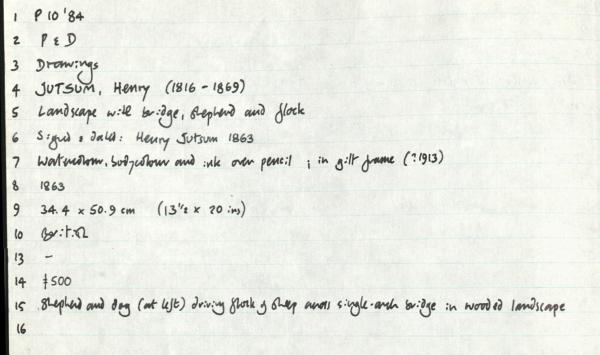 1 P 10 '84
2 P & D
3 Drawings
4 JUTSUM, Henry (1816 - 1869)
5 Landscape with bridge, shepherd and flock
6 Signed & dated: Henry Jutsum 1863
7 Watercolour, bodycolour and ink over pencil ; in gilt frame (?1913)
8 1863
9 34.4 x 50.9 cm (13½ x 20 ins)
10 British
13 -
14 £500
15 Shepherd and dog (at left) driving flock of sheep across single-arch bridge in wooded landscape
16